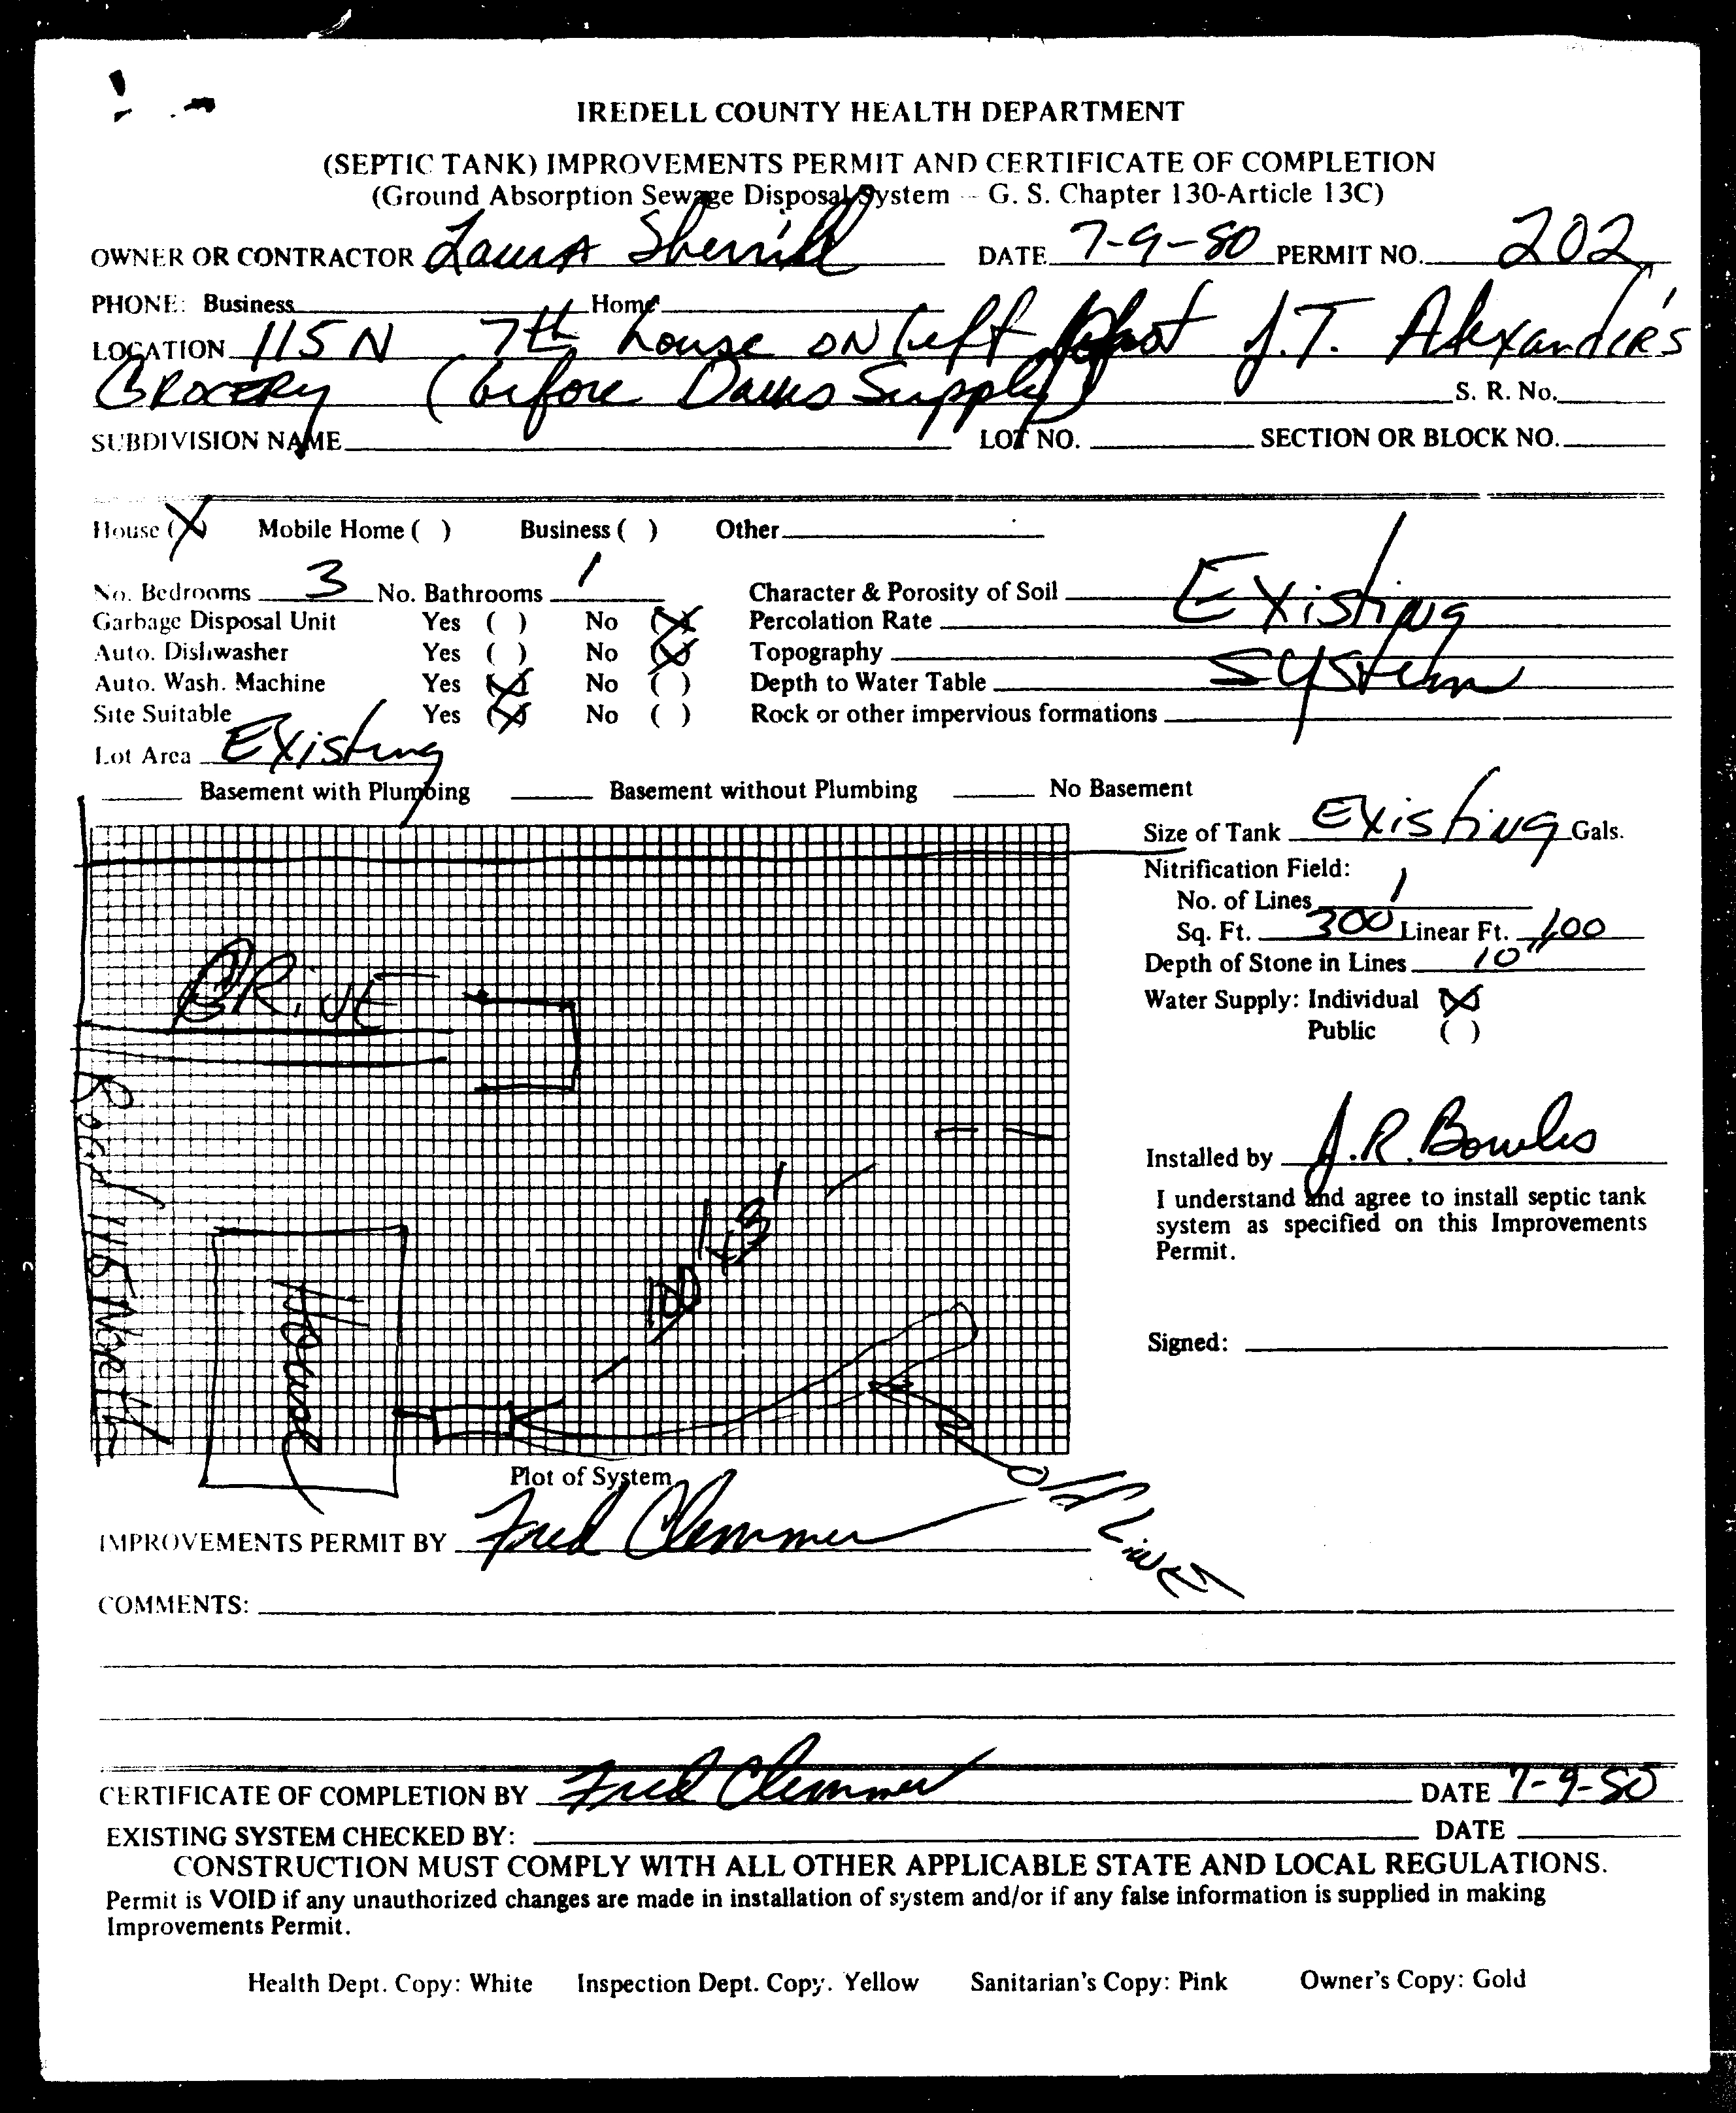 IREDELL COUNTY HEALTH DEPARTMENT
(SEPTIC TANK) IMPROVEMENTS PERMIT AND CERTIFICATE OF COMPLETION
(Ground Absorption Sewage Disposal System - G. S. Chapter 130-Article 13C)
OWNER OR CONTRACTOR Laura Sherrill DATE 7-9-80 PERMIT NO. 202
PHONE: Business Home
LOCATION 115 N 7th house on left past J.T. Alexander's
Grocery (before Davis Supply) S. R. No.
SUBDIVISION NAME LOT NO. SECTION OR BLOCK NO.
House (X) Mobile Home ( ) Business ( ) Other
No. Bedrooms 3 No. Bathrooms 1 Character & Porosity of Soil Existing
Garbage Disposal Unit Yes ( ) No (X) Percolation Rate
Auto. Dishwasher Yes ( ) No (X) Topography System
Auto. Wash. Machine Yes (X) No ( ) Depth to Water Table
Site Suitable Yes (X) No ( ) Rock or other impervious formations
Lot Area Existing
Basement with Plumbing Basement without Plumbing No Basement
Size of Tank Existing Gals.
Nitrification Field:
No. of Lines 1
Sq. Ft. 300 Linear Ft. 100
Depth of Stone in Lines 10"
Water Supply: Individual (X)
Public ( )
DRIVE
Road 115 North
House
100' x 3'
Old Line
Installed by J.R. Bowles
I understand and agree to install septic tank
system as specified on this Improvements
Permit.
Signed:
Plot of System
IMPROVEMENTS PERMIT BY Fred Clemmer
COMMENTS:
CERTIFICATE OF COMPLETION BY Fred Clemmer DATE 7-9-80
EXISTING SYSTEM CHECKED BY: DATE
CONSTRUCTION MUST COMPLY WITH ALL OTHER APPLICABLE STATE AND LOCAL REGULATIONS.
Permit is VOID if any unauthorized changes are made in installation of system and/or if any false information is supplied in making
Improvements Permit.
Health Dept. Copy: White Inspection Dept. Copy. Yellow Sanitarian's Copy: Pink Owner's Copy: Gold